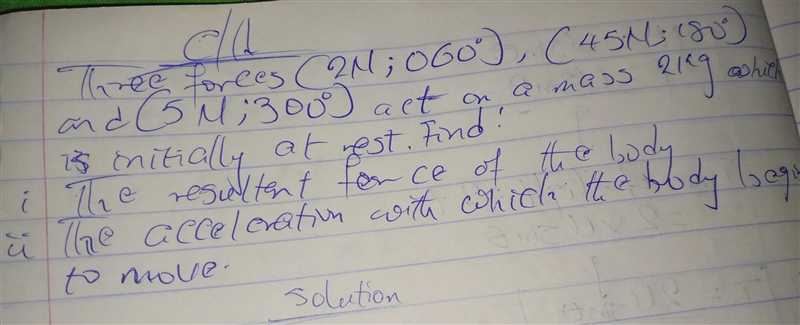 C/A
Three forces (2N; 060°), (45N; 180°)
and (5N; 300°) act on a mass 2kg which
is initially at rest. Find:
i The resultent force of the body
ii The acceleration with which the body begin
to move.
Solution